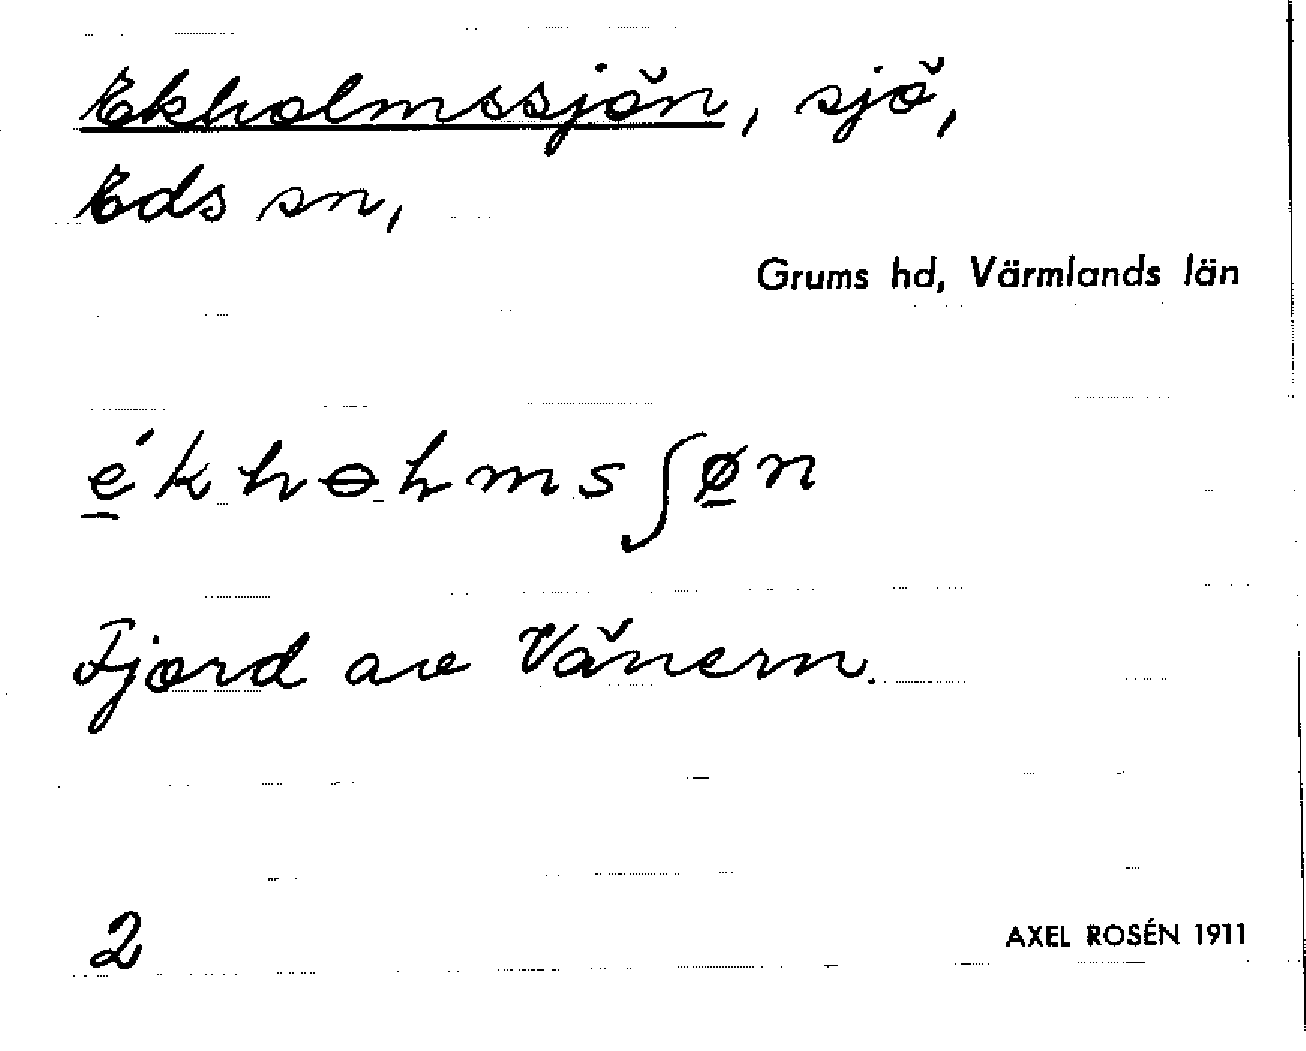 Ekholmssjön, sjö,
Eds sn,
Grums hd, Värmlands län
é̱khɵhmsʃø̱n
Fjord av Vänern.
2
AXEL ROSÉN 1911